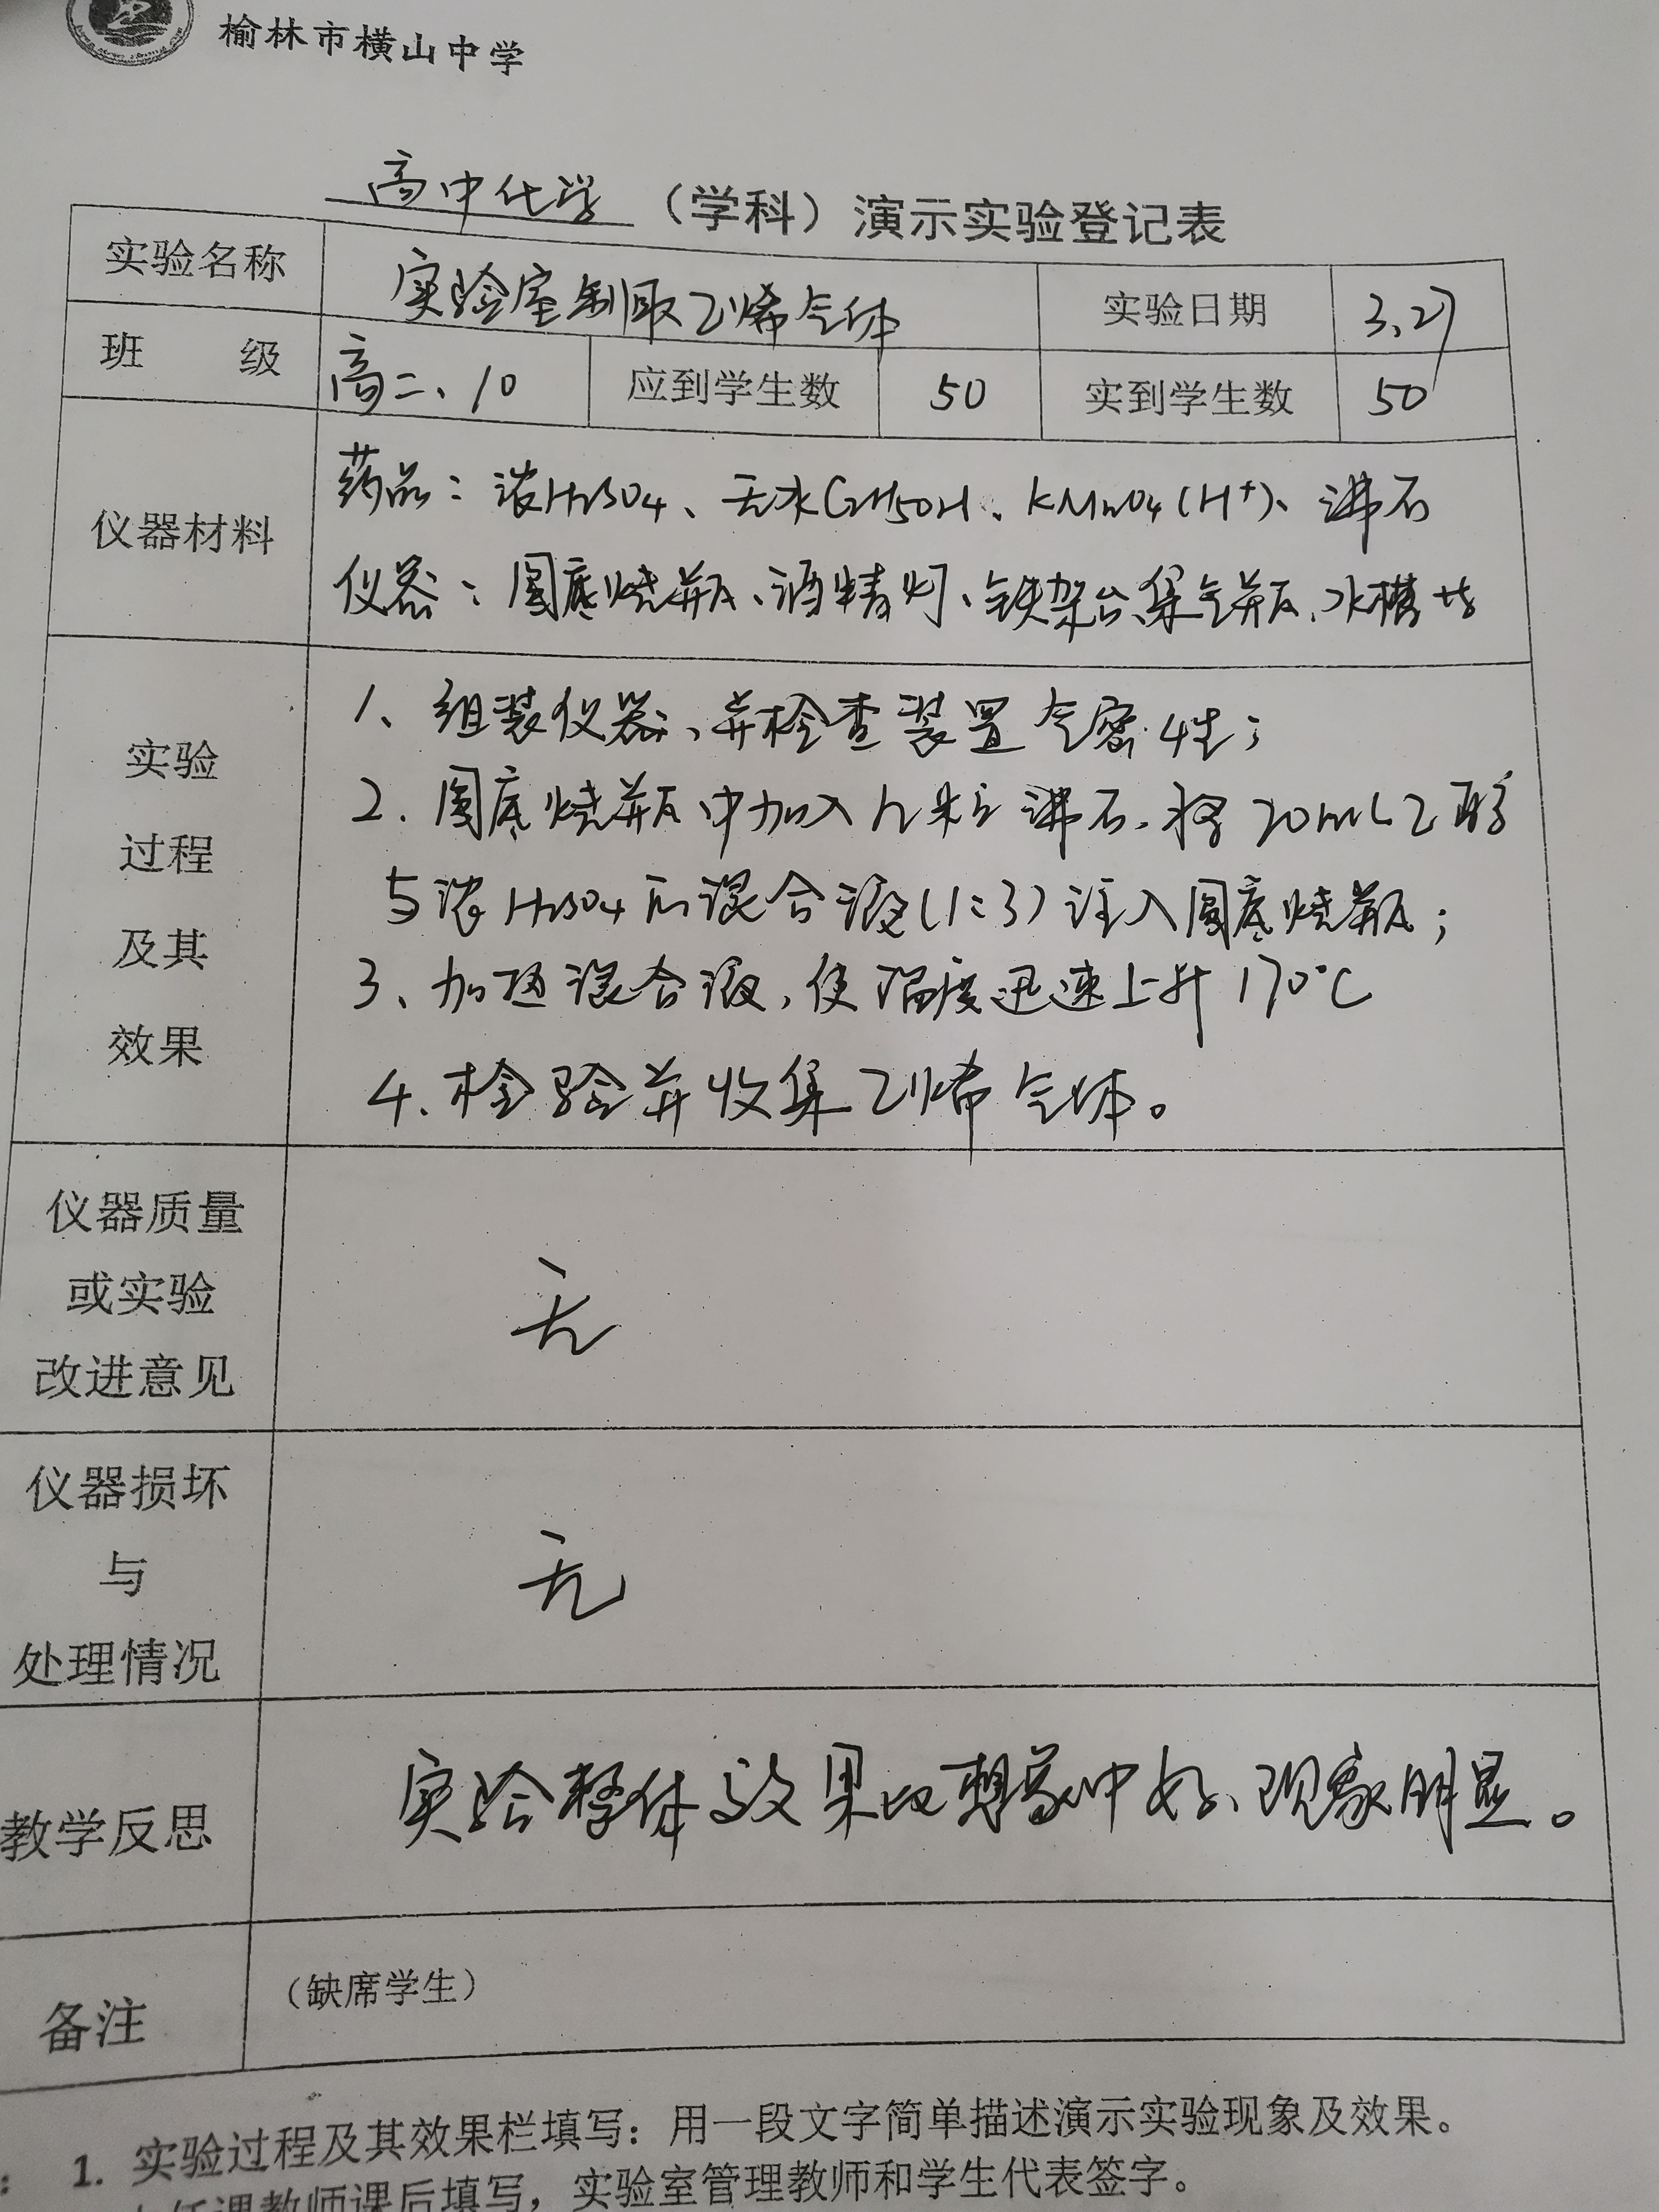 榆林市横山中学
高中化学（学科）演示实验登记表
实验名称 实验室制取乙烯气体 实验日期 3.27
班 级 高二、10 应到学生数 50 实到学生数 50
仪器材料
药品：浓H2SO4、无水C2H5OH、KMnO4(H+)、沸石
仪器：圆底烧瓶、酒精灯、铁架台、集气瓶、水槽等
实验
过程
及其
效果
1、组装仪器、并检查装置气密性；
2.圆底烧瓶中加入几粒沸石，将20mL乙醇
与浓H2SO4的混合液(1:3)注入圆底烧瓶；
3、加热混合液，使温度迅速上升170℃
4.检验并收集乙烯气体。
仪器质量
或实验
改进意见
无
仪器损坏
与
处理情况
无
教学反思 实验整体效果比想象中好、现象明显。
备注 （缺席学生）
1. 实验过程及其效果栏填写：用一段文字简单描述演示实验现象及效果。
任课教师课后填写，实验室管理教师和学生代表签字。